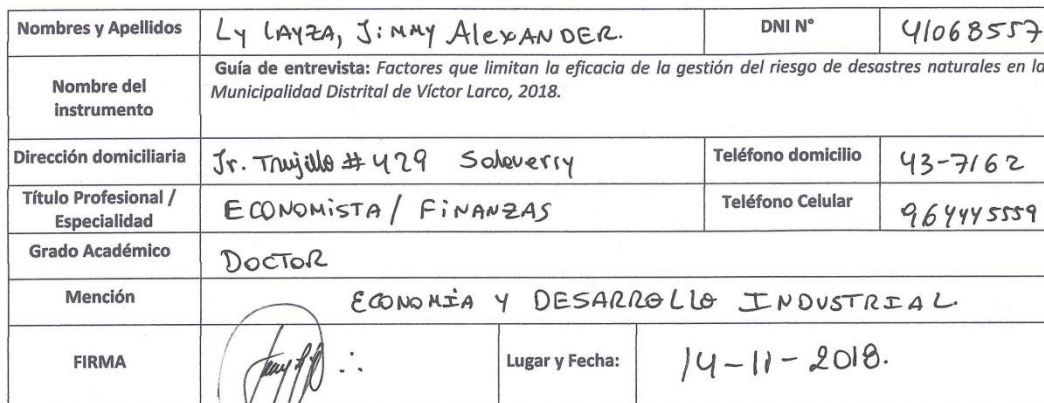 Nombres y Apellidos LY LAYZA, JIMMY AlexANDER. DNI N° 41068557
Nombre del instrumento Guía de entrevista: Factores que limitan la eficacia de la gestión del riesgo de desastres naturales en la
Municipalidad Distrital de Víctor Larco, 2018.
Dirección domiciliaria Jr. Trujillo # 429 Salaverry Teléfono domicilio 43-7162
Título Profesional / Especialidad ECONOMISTA / FINANZAS Teléfono Celular 964445559
Grado Académico DOCTOR
Mención ECONOMÍA Y DESARROLLO INDUSTRIAL.
FIRMA Lugar y Fecha: 14-11-2018.